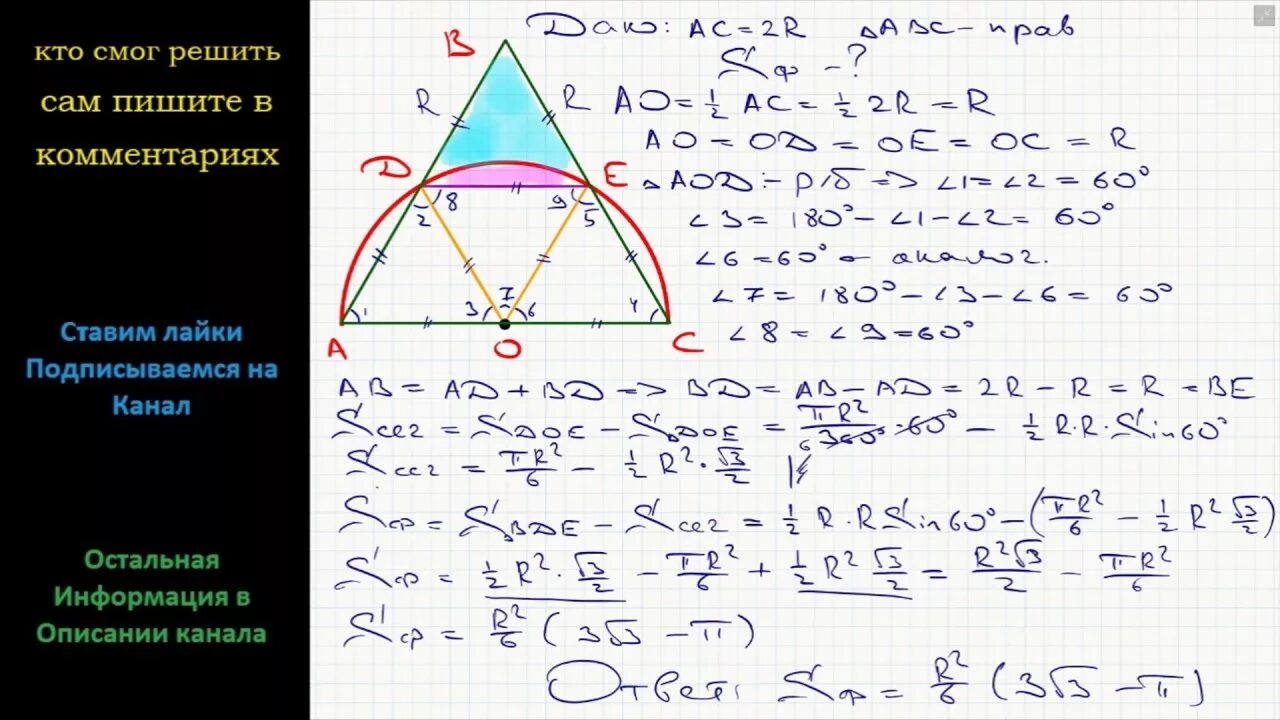 кто смог решить
сам пишите в
комментариях
Ставим лайки
Подписываемся на
Канал
Остальная
Информация в
Описании канала
B
R
R
D
E
2
8
9
5
1
3
7
6
4
A
O
C
Дано: AC = 2R ΔABC – прав
Sф – ?
AO = 1/2 AC = 1/2 2R = R
AO = OD = OE = OC = R
ΔAOD – р/б => ∠1 = ∠2 = 60°
∠3 = 180° – ∠1 – ∠2 = 60°
∠6 = 60° – аналог.
∠7 = 180° – ∠3 – ∠6 = 60°
∠8 = ∠9 = 60°
AB = AD + BD => BD = AB – AD = 2R – R = R = BE
Sсег = SDOE – SΔDOE = πR²/360° · 60° – 1/2 R·R·Sin60°
6
Sсег = πR²/6 – 1/2 R² · √3/2
Sф = SΔBDE – Sсег = 1/2 R·R Sin60° – (πR²/6 – 1/2 R² √3/2)
Sф = 1/2 R² · √3/2 – πR²/6 + 1/2 R² √3/2 = R²√3/2 – πR²/6
Sф = R²/6 (3√3 – π)
Ответ: Sф = R²/6 (3√3 – π)